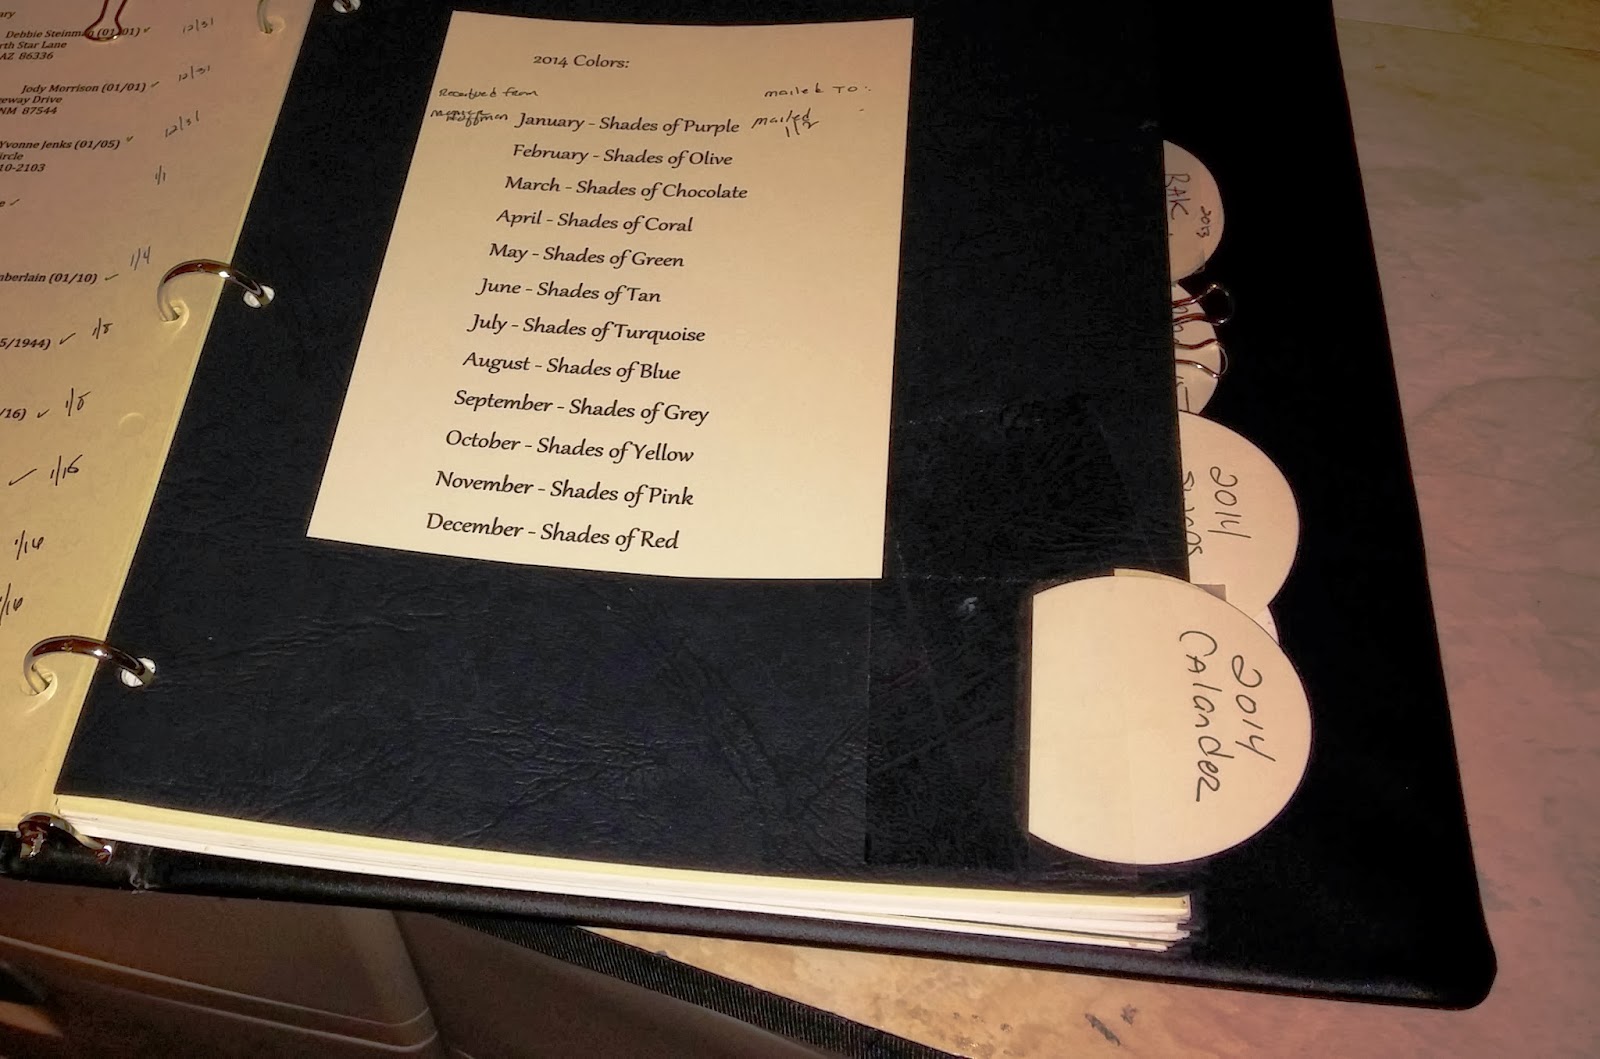 ary
Debbie Steinman (01/01) ✓ 12/31
rth Star Lane
AZ 86336
Jody Morrison (01/01) ✓ 12/31
eway Drive
NM 87544
12/31
Yvonne Jenks (01/05) ✓
ircle
10-2103
1/1
e ✓
1/4
mberlain (01/10) ✓
5/1944) ✓ 1/8
/16) ✓ 1/8
✓ 1/16
1/16
1/16
2014 Colors:
Received from mailed To:
Hoffman January - Shades of Purple mailed 1/2
February - Shades of Olive
March - Shades of Chocolate
April - Shades of Coral
May - Shades of Green
June - Shades of Tan
July - Shades of Turquoise
August - Shades of Blue
September - Shades of Grey
October - Shades of Yellow
November - Shades of Pink
December - Shades of Red
RAK
2013
2014
2014
CAlander